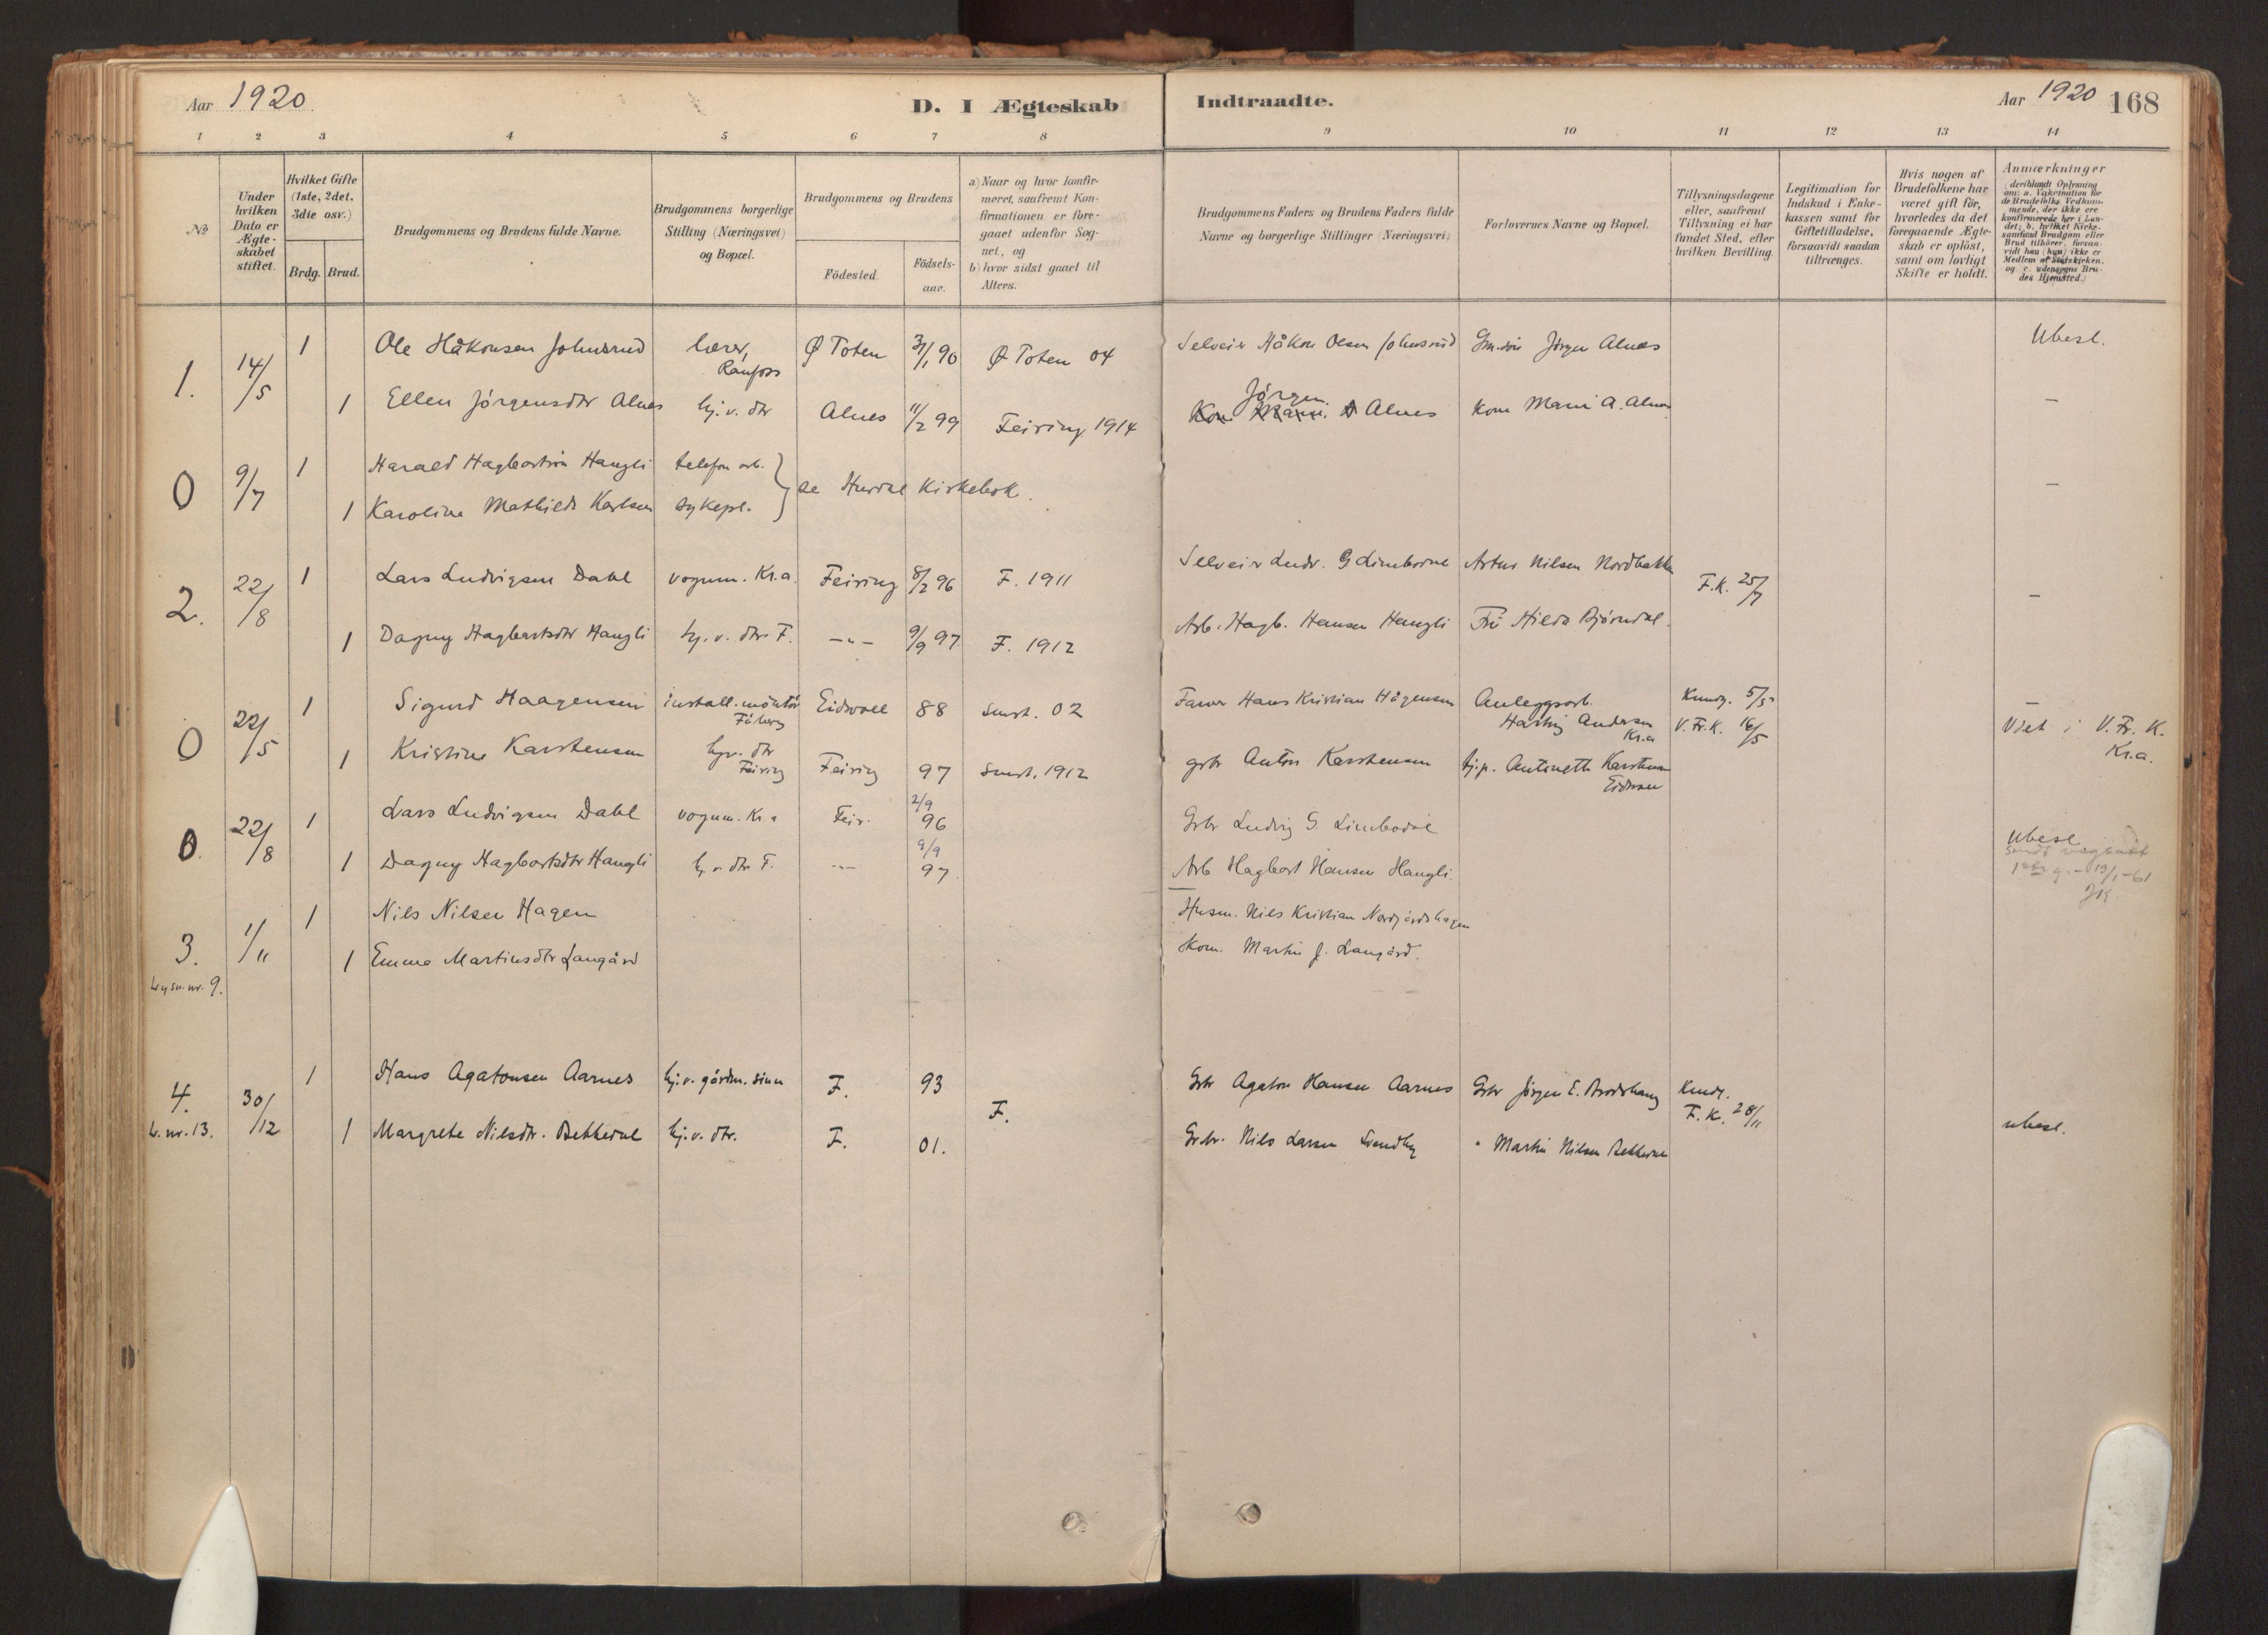 Aar 1920
D. I Ægteskab Indtraadte.
Aar 1920 168
1 2 3 4 5 6 7 8 9 10 11 12 13 14
№
Under hvilken Dato er Ægteskabet stiftet.
Hvilket Gifte (1ste, 2det, 3die osv.)
Brdg. Brud.
Brudgommens og Brudens fulde Navne.
Brudgommens borgerlige Stilling (Næringsvei) og Bopæl.
Brudgommens og Brudens
Födested. Födselsaar.
a) Naar og hvor konfirmeret, saafremt Konfirmationen er foregaaet udenfor Sognet, og
b) hvor sidst gaaet til Alters.
Brudgommens Faders og Brudens Faders fulde Navne og borgerlige Stillinger (Næringsvei)
Forlovernes Navne og Bopæl.
Tillysningsdagene eller, saafremt Tillysning ei har fundet Sted, efter hvilken Bevilling.
Legitimation for Indskud i Enkekassen samt for Giftetilladelse, forsaavidt saadan tiltrænges.
Hvis nogen af Brudefolkene har været gift för, hvorledes da det foregaaende Ægteskab er oplöst, samt om lovligt Skifte er holdt.
Anmærkninger (deriblandt Oplysning om: a. Vakcination for de Brudefolks Vedkommende, der ikke ere konfirmerede her i Landet; b. hvilket Kirkesamfund Brudgom eller Brud tilhörer, forsaavidt han (hun) ikke er Medlem af Statskirken, og c. udensogns Brudes Hjemsted.)
1. 14/5 1 Ole Håkonsen Johnsrud lærer, Raufoss Ø Toten 31/1 90 Ø Toten 04 Selveier Håkon Olsen Johnsrud Jörgen Alnæs Ubesl.
1 Ellen Jörgensdtr Alnes hj.v. dtr Alnes 11/2 99 Feiring 1914 Jörgen Alnes kone Marie A. Alnes –
0 9/7 1 Harald Hagbartsön Hangli telefon arb. } se Hurdal Kirkebok. –
1 Karoline Mathilde Karlsen sykepl.
2. 22/8 1 Lars Ludvigsen Dahl vognm. Kr.a. Feiring 8/2 96 F. 1911 Selveier Ludv. G Limbodal Artur Nilsen Nordbakken F.K. 25/7 –
1 Dagny Hagbartsdtr Hangli hj.v. dtr F. –"– 9/9 97 F. 1912 Arb. Hagb. Hansen Hangli Frk Hilda Björndal.
0 22/5 1 Sigurd Haagensen install.montör Eidsvoll 88 Smst. 02 Farver Hans Kristian Hågensen Anleggsarb. Andersen Kr.a Kundg. 5/5 V.Fr.K. 16/5 – Viet i V. Fr. K. Kr.a.
1 Kristine Karstensen hjv. dtr Feiring Feiring 97 Smst. 1912 grbr Anton Karstensen Antinette Karstensen
0. 22/8 1 Lars Ludvigsen Dahl vognm. Kr.a Feir. 2/9 96 Grbr Ludvig G. Limbodal Ubesl
1 Dagny Hagbartsdtr Hangli h.v. dtr F. –"– 9/9 97 Arb Hagbart Hansen Hangli. 19/1-61
3. 1/11 1 Nils Nilsen Hagen Husm. Nils Kristian Nordgårdshagen
lysn. nr. 9. 1 Emma Martinsdtr Langård Skom. Martin J. Langård.
4. 30/12 1 Hans Agatonsen Aarnes hj.v. gårdm. sönn F. 93 F. Grbr Agaton Hansen Aarnes Grbr Jörgen E. Kundg. F.K. 28/11
l. nr. 13. 1 Margrete Nilsdtr. Bekkedal hj.v. dtr. F. 01. Grbr. Nils Larsen Sundby " Martin Nilsen Bekkedal ubesl.